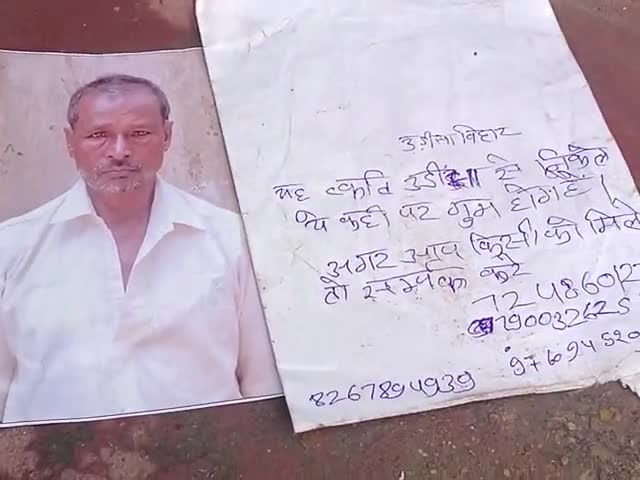 उड़ीसा बिहार
यह व्यक्ति उड़ीसा से निकले
थे कही पर गुम होगए है।
अगर आप (किसी) को मिले
तो सम्पर्क करे
72486012
79003262S
97694520
8267894939